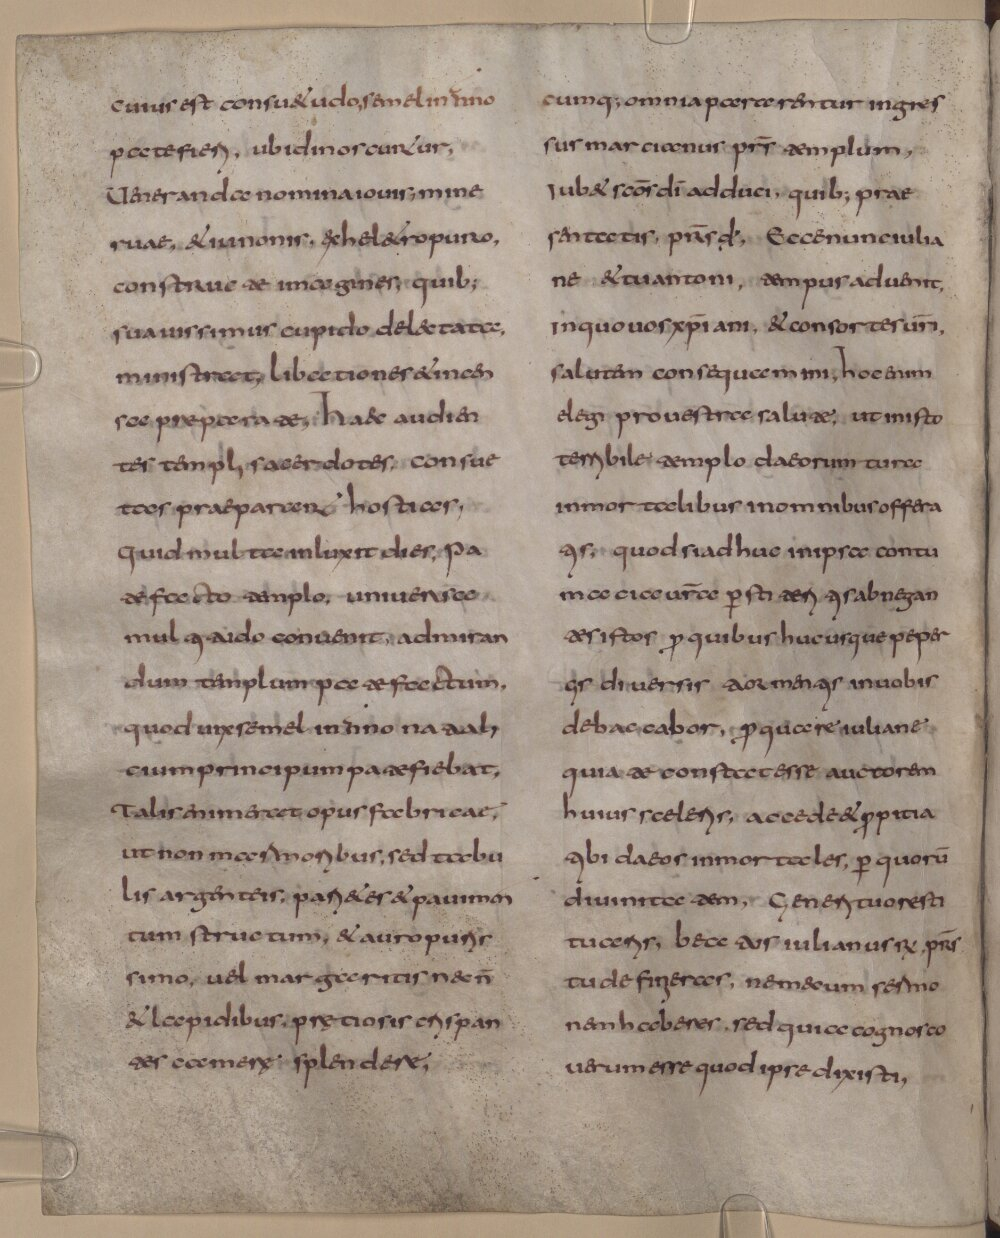 cuius est consu&udo, semel in anno
patefieri, ubi dinoscuntur,
Uenerandae nomina iouis, mine
ruae, & iunonis, & hel&ro puro,
constructae imagines, quib;
suauissimus cupido delectatae,
ministrat, libationes & incen
sa praeparate, Haec audien
tes templi sacerdotes, consue
tas praeparant hostias,
Quid multa inluxit dies, Pa
tefacto templo, uniuersa
multitudo conuenit, admiran
dum templum patefactum,
quod uix semel in anno natali
cium principum patefiebat,
Talis enim erat opus fabricae,
ut non marmoribus, sed tabu
lis argenteis, pari&es & pauimen
tum structum, & auro puris
simo, uel margaritis necn̄
& lapidibus, pretiosis crispan
tes camere splendere,
cumq; omnia pararentur ingres
sus marcianus prs̄ templum,
Iub& scōs dī adduci, quib; prae
sentatis, prs̄ d̄, Ecce nunc iulia
ne & tu antoni, tempus aduenit,
In quo uos xp̄iani, & consortes ur̄i,
salutem consequamini, hoc enim
elegi pro uestra salute, ut in isto
terribile templo daeorum tura
inmortalibus in omnibus offera
tis, quod si adhuc in ipsa contu
macia ur̄a ꝑstiteritis abnegan
tes istos ꝓ quibus hucusque peper
cis diuersis tormentis in uobis
debaccabor, ꝓ quare iuliane
quia te constat esse auctorem
huius sceleris, accede & ꝓpitia
tibi daeos inmortales, ꝑ quorū
diuinitatem, Generi tuo resti
tuaris, beatus iulianus re prs̄
tu deficeras, ne mecum sermo
nem haberes, sed quia cognosco
uerum esse quod ipse dixisti,